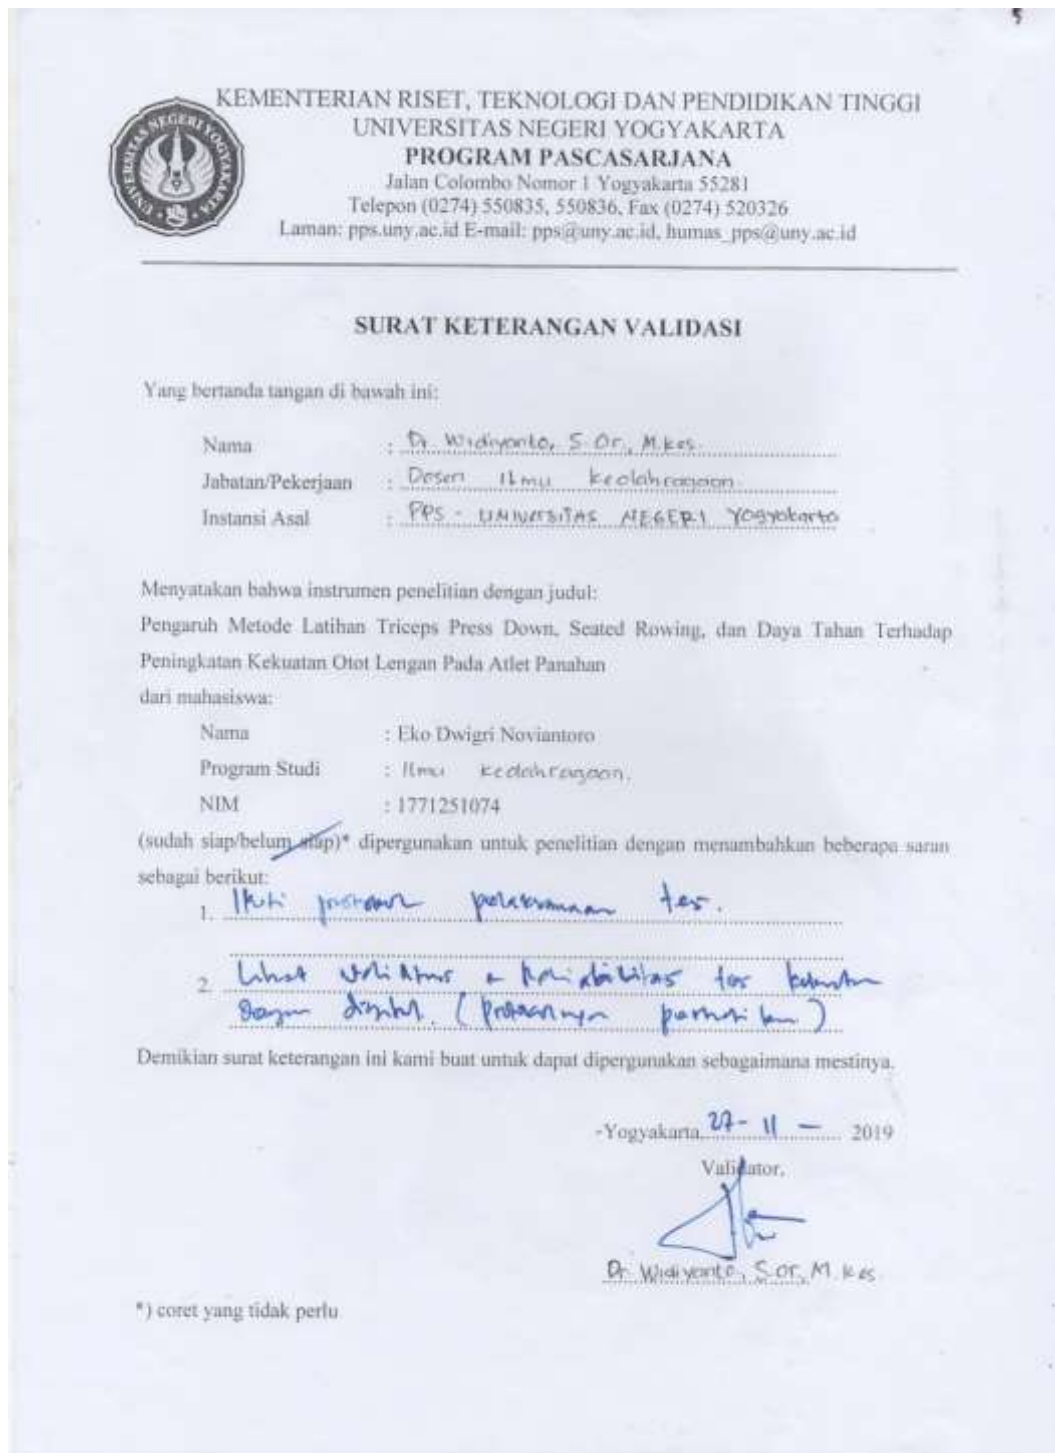 KEMENTERIAN RISET, TEKNOLOGI DAN PENDIDIKAN TINGGI
UNIVERSITAS NEGERI YOGYAKARTA
PROGRAM PASCASARJANA
Jalan Colombo Nomor 1 Yogyakarta 55281
Telepon (0274) 550835, 550836, Fax (0274) 520326
Laman: pps.uny.ac.id E-mail: pps@uny.ac.id, humas_pps@uny.ac.id
UNIVERSITAS NEGERI YOGYAKARTA
SURAT KETERANGAN VALIDASI
Yang bertanda tangan di bawah ini:
Nama : Dr. Widiyanto, S.Or., M.Kes.
Jabatan/Pekerjaan : Dosen Ilmu Keolahragaan
Instansi Asal : PPS - UNIVERSITAS NEGERI Yogyakarta
Menyatakan bahwa instrumen penelitian dengan judul:
Pengaruh Metode Latihan Triceps Press Down, Seated Rowing, dan Daya Tahan Terhadap
Peningkatan Kekuatan Otot Lengan Pada Atlet Panahan
dari mahasiswa:
Nama : Eko Dwigri Noviantoro
Program Studi : Ilmu Keolahragaan.
NIM : 1771251074
(sudah siap/belum siap)* dipergunakan untuk penelitian dengan menambahkan beberapa saran
sebagai berikut:
1. Ikuti pelaksanaan tes.
2. Lihat validitas & Reliabilitas tes
( )
Demikian surat keterangan ini kami buat untuk dapat dipergunakan sebagaimana mestinya.
-Yogyakarta, 27- 11 - 2019
Validator,
Dr. Widiyanto, S.Or., M.Kes.
*) coret yang tidak perlu